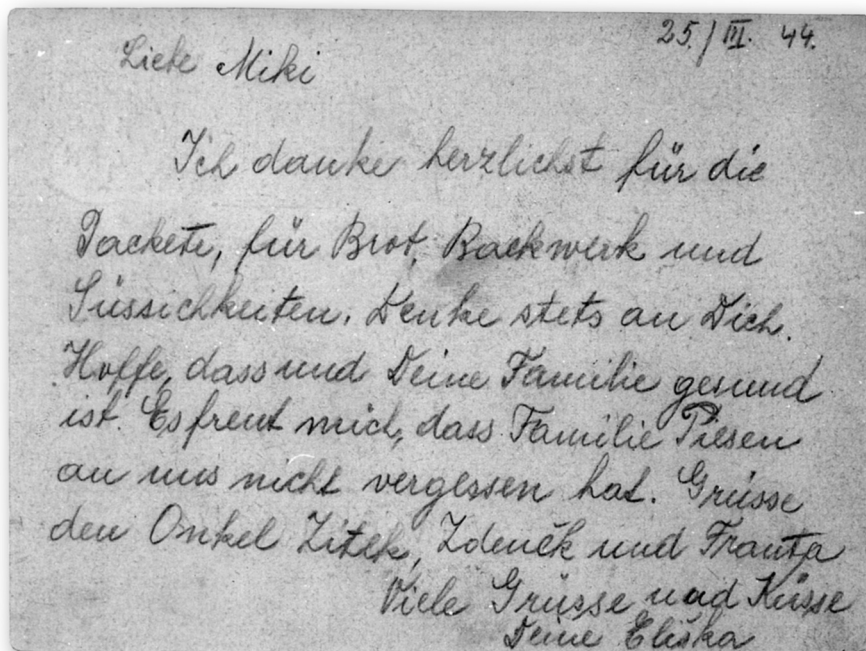 25./III. 44.
Liebe Miki
Ich danke herzlichst für die
Packete, für Brot, Backwerk und
Süssichkeiten. Denke stets an Dich.
Hoffe, dass und Deine Familie gesund
ist. Es freut mich, dass Familie Piesen
an uns nicht vergessen hat. Grüsse
den Onkel Zitek, Zdeněk und Franta
Viele Grüsse und Küsse
Deine Eliška